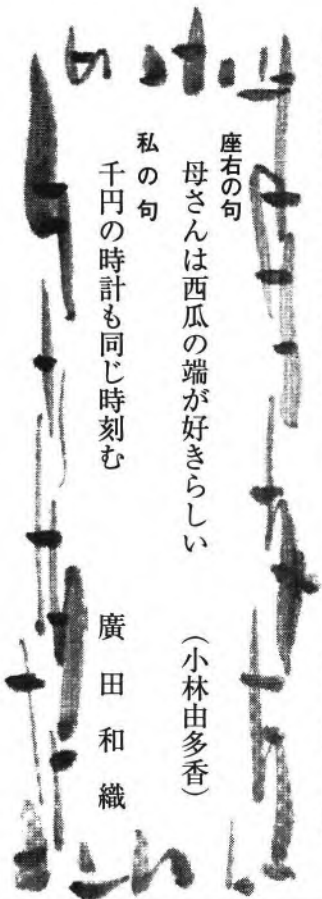 座右の句
母さんは西瓜の端が好きらしい　（小林由多香）
私の句
千円の時計も同じ時刻む
廣田和織